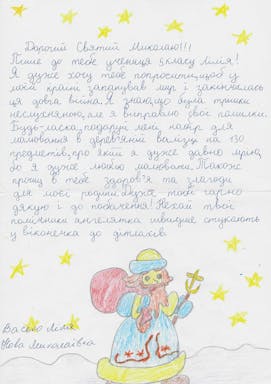 Дорогий Святий Миколаю!!!
Пише до тебе учениця 5 класу Лілія!
Я дуже хочу тебе попросити, щоб у
моїй країні запанував мир і закінчилась
ця довга війна. Я знаю, що була трішки
неслухняною, але я виправлю свої помилки.
Будь-ласка, подаруй мені набір для
малювання в дерев'яній валізці на 130
предметів, про який я дуже давно мрію,
бо я дуже люблю малювати. Також
прошу в тебе здоров'я та злагоди
для моєї родини. Дуже тобі гарно
дякую і до побачення! Нехай твої
помічники ангелятка швидше стукають
у віконечка до діточків.
Лілія
Нова Миколаївка